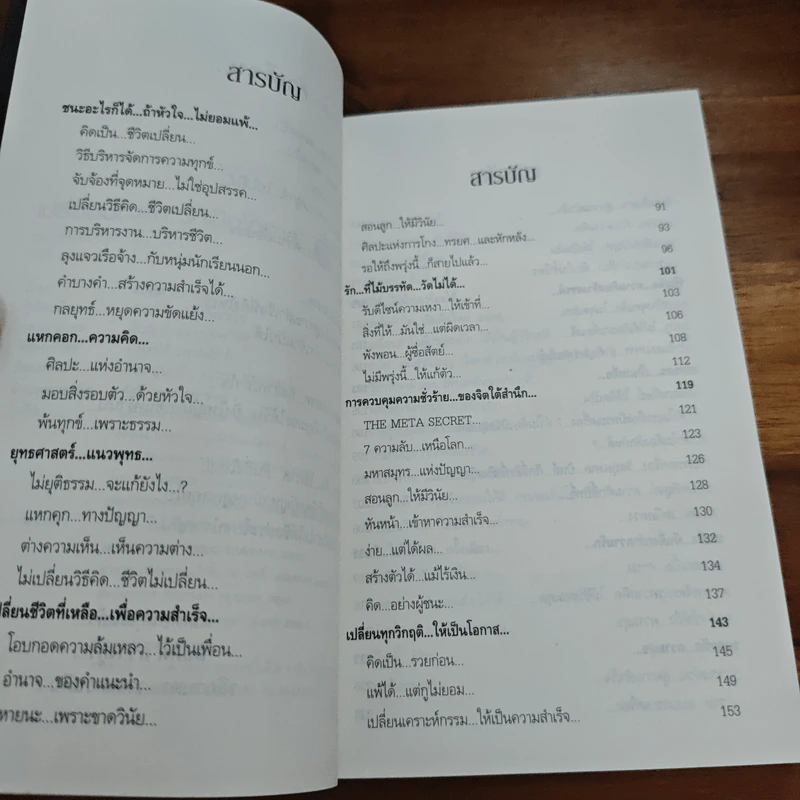 สารบัญ
ชนะอะไรก็ได้...ถ้าหัวใจ...ไม่ยอมแพ้...
คิดเป็น...ชีวิตเปลี่ยน...
วิธีบริหารจัดการความทุกข์...
จับจ้องที่จุดหมาย...ไม่ใช่อุปสรรค...
เปลี่ยนวิธีคิด...ชีวิตเปลี่ยน...
การบริหารงาน...บริหารชีวิต...
ลุงแจวเรือจ้าง...กับหนุ่มนักเรียนนอก...
คำบางคำ...สร้างความสำเร็จได้...
กลยุทธ์...หยุดความขัดแย้ง...
แหกคอก...ความคิด...
ศิลปะ...แห่งอำนาจ...
มอบสิ่งรอบตัว...ด้วยหัวใจ...
พ้นทุกข์...เพราะธรรม...
ยุทธศาสตร์...แนวพุทธ...
ไม่ยุติธรรม...จะแก้ยังไง...?
แหกคุก...ทางปัญญา...
ต่างความเห็น...เห็นความต่าง...
ไม่เปลี่ยนวิธีคิด...ชีวิตไม่เปลี่ยน...
ลี่ยนชีวิตที่เหลือ...เพื่อความสำเร็จ...
โอบกอดความล้มเหลว...ไว้เป็นเพื่อน...
อำนาจ...ของคำแนะนำ...
หายนะ...เพราะขาดวินัย...
สารบัญ
สอนลูก...ให้มีวินัย... 91
ศิลปะแห่งการโกง...ทรยศ...และหักหลัง... 93
รอให้ถึงพรุ่งนี้...ก็สายไปแล้ว... 96
รัก...ที่ไม้บรรทัด...วัดไม่ได้... 101
รับดีไซน์ความเหงา...ให้เข้าที่... 103
สิ่งที่ให้...มันใช่...แต่ผิดเวลา... 106
พังพอน...ผู้ซื่อสัตย์... 108
ไม่มีพรุ่งนี้...ให้แก้ตัว... 112
การควบคุมความชั่วร้าย...ของจิตใต้สำนึก... 119
THE META SECRET... 121
7 ความลับ...เหนือโลก... 123
มหาสมุทร...แห่งปัญญา... 126
สอนลูก...ให้มีวินัย... 128
หันหน้า...เข้าหาความสำเร็จ... 130
ง่าย...แต่ได้ผล... 132
สร้างตัวได้...แม้ไร้เงิน... 134
คิด...อย่างผู้ชนะ... 137
เปลี่ยนทุกวิกฤติ...ให้เป็นโอกาส... 143
คิดเป็น...รวยก่อน... 145
แพ้ได้...แต่กูไม่ยอม... 149
เปลี่ยนเคราะห์กรรม...ให้เป็นความสำเร็จ... 153